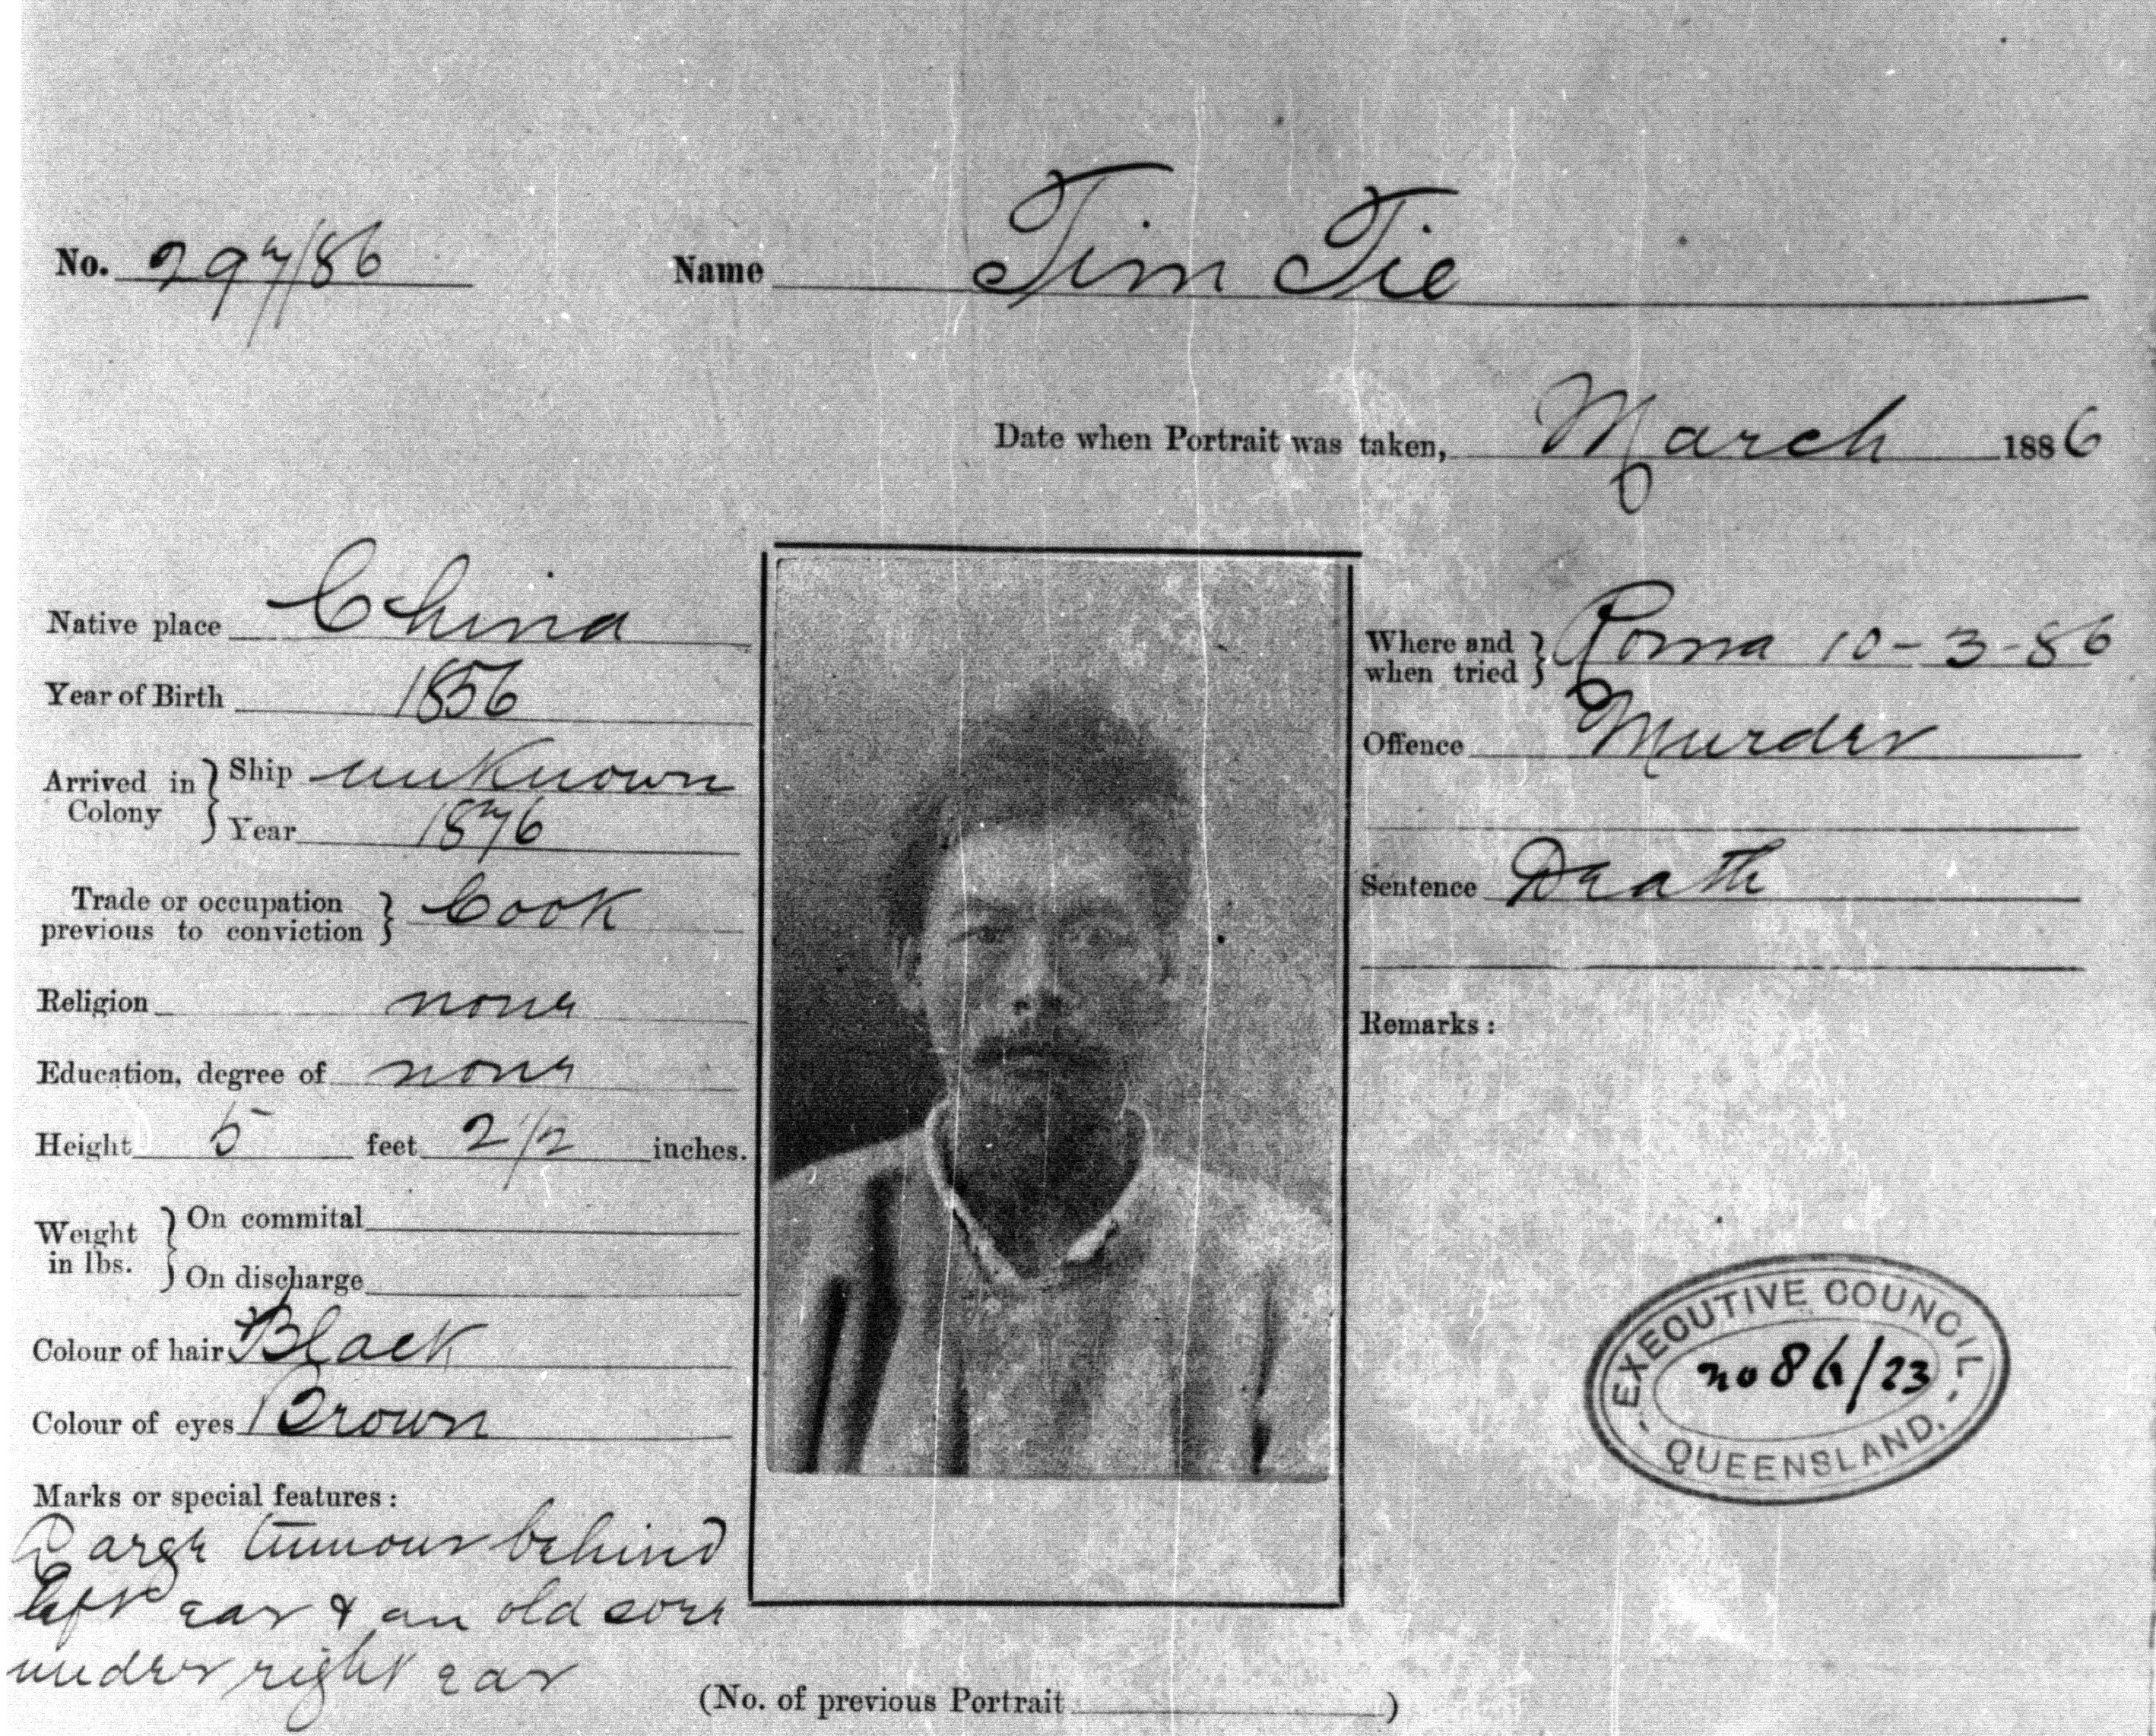 No. 297/86 Name Tim Tie
Date when Portrait was taken, March 1886
Native place China
Year of Birth 1856
Arrived in Colony } Ship unknown
Year 1876
Trade or occupation
previous to conviction } Cook
Religion none
Education, degree of none
Height 5 feet 2 1/2 inches.
Weight in lbs. } On commital
On discharge
Colour of hair Black
Colour of eyes Brown
Marks or special features :
Large tumour behind
left ear & an old sore
under right ear
Where and
when tried } Roma 10-3-86
Offence Murder
Sentence Death
Remarks :
EXECUTIVE COUNCIL
no 86/23
- QUEENSLAND. -
(No. of previous Portrait )